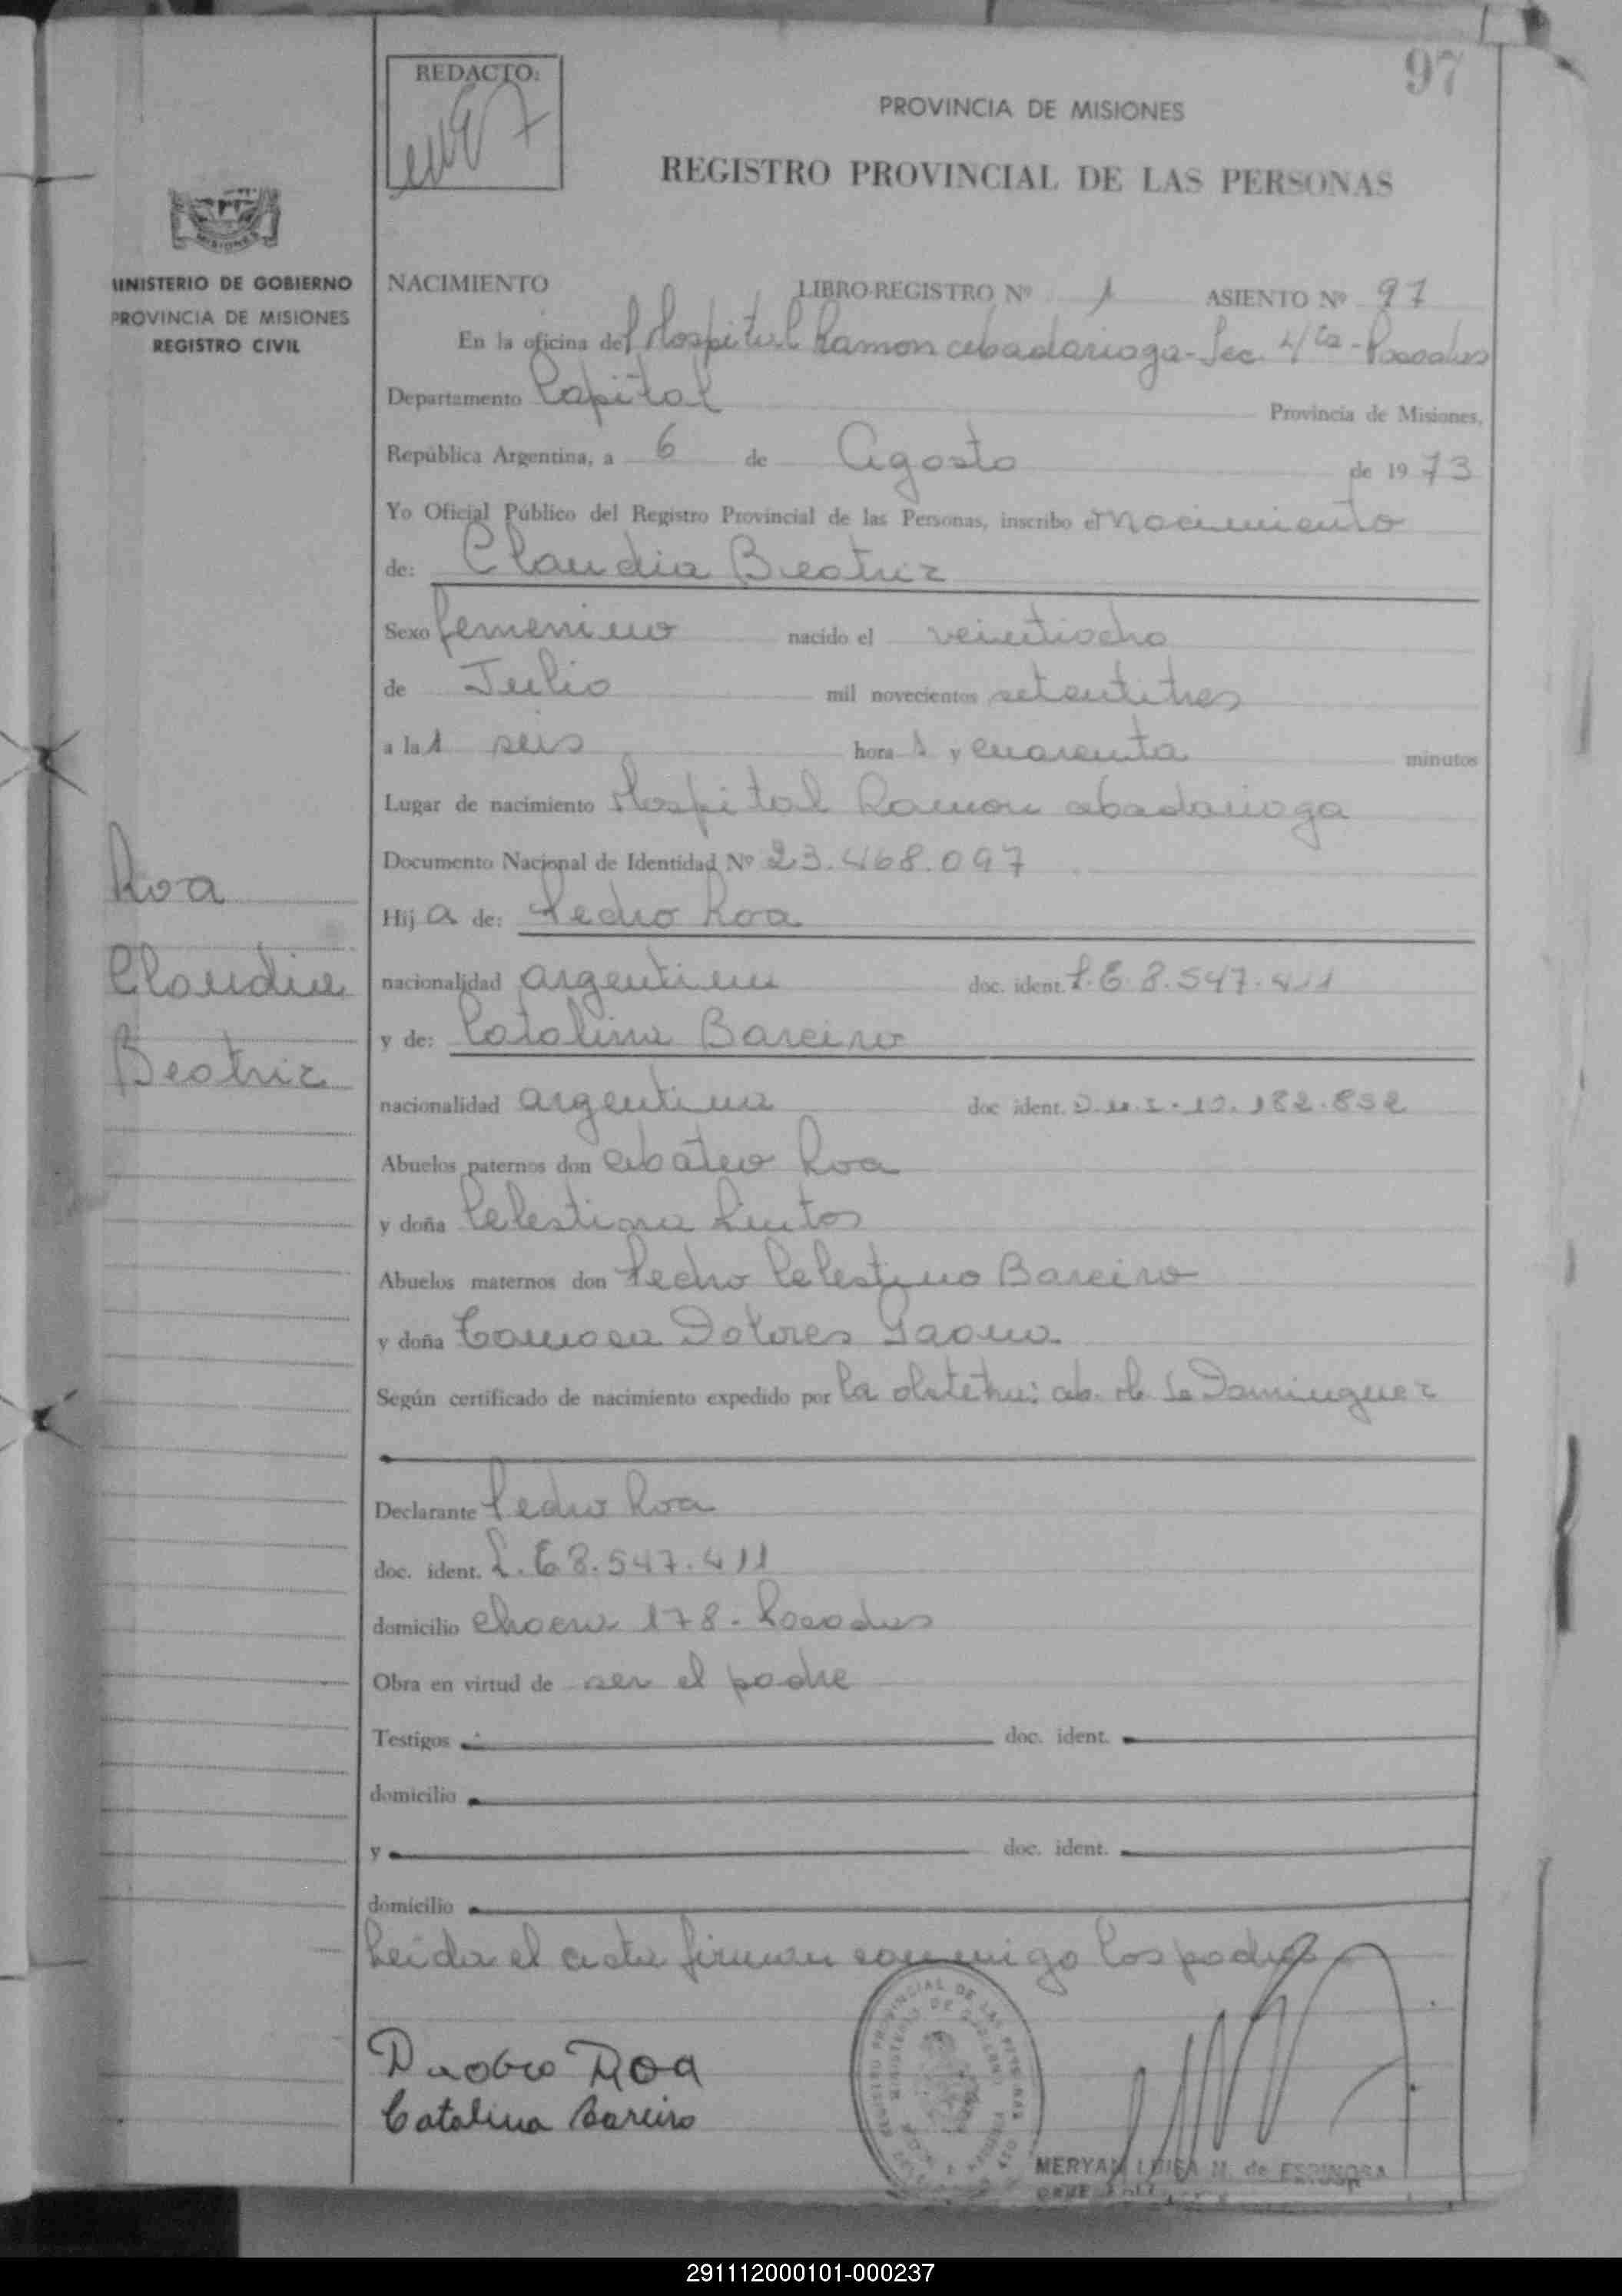 97
REDACTO:
PROVINCIA DE MISIONES
REGISTRO PROVINCIAL DE LAS PERSONAS
MISIONES
MINISTERIO DE GOBIERNO
PROVINCIA DE MISIONES
REGISTRO CIVIL
NACIMIENTO LIBRO-REGISTRO Nº 1 ASIENTO Nº 97
En la oficina del Hospital Ramon abadarioga - Sec. 4ta - Posadas
Departamento Capital Provincia de Misiones,
República Argentina, a 6 de Agosto de 1973
Yo Oficial Público del Registro Provincial de las Personas, inscribo el Nacimiento
de: Claudia Beatriz
Sexo femenino nacido el veintiocho
de Julio mil novecientos setentitres
a las seis horas y cuarenta minutos
Lugar de nacimiento Hospital Ramon abadarioga
Documento Nacional de Identidad Nº 23.468.097
Hija de: Pedro Roa
nacionalidad argentina doc. ident. L.E 8.547.411
y de: Catalina Bareiro
nacionalidad argentina doc ident. D.N.I. 10.182.852
Abuelos paternos don Roa
y doña Celestina
Abuelos maternos don Pedro Celestino Bareiro
y doña Dolores Gaona
Según certificado de nacimiento expedido por la obstetri: de Dominguez
Declarante Pedro Roa
doc. ident. L.E 8.547.411
domicilio 178 - Posadas
Obra en virtud de ser el padre
Testigos doc. ident.
domicilio
y doc. ident.
domicilio
Leida el acta firman conmigo los padres
Roa
Claudia
Beatriz
Roa
Catalina Bareiro
REGISTRO PROVINCIAL DE LAS PERSONAS
MINISTERIO DE GOBIERNO
MERYAN LUISA N. de ESPINOSA
291112000101-000237